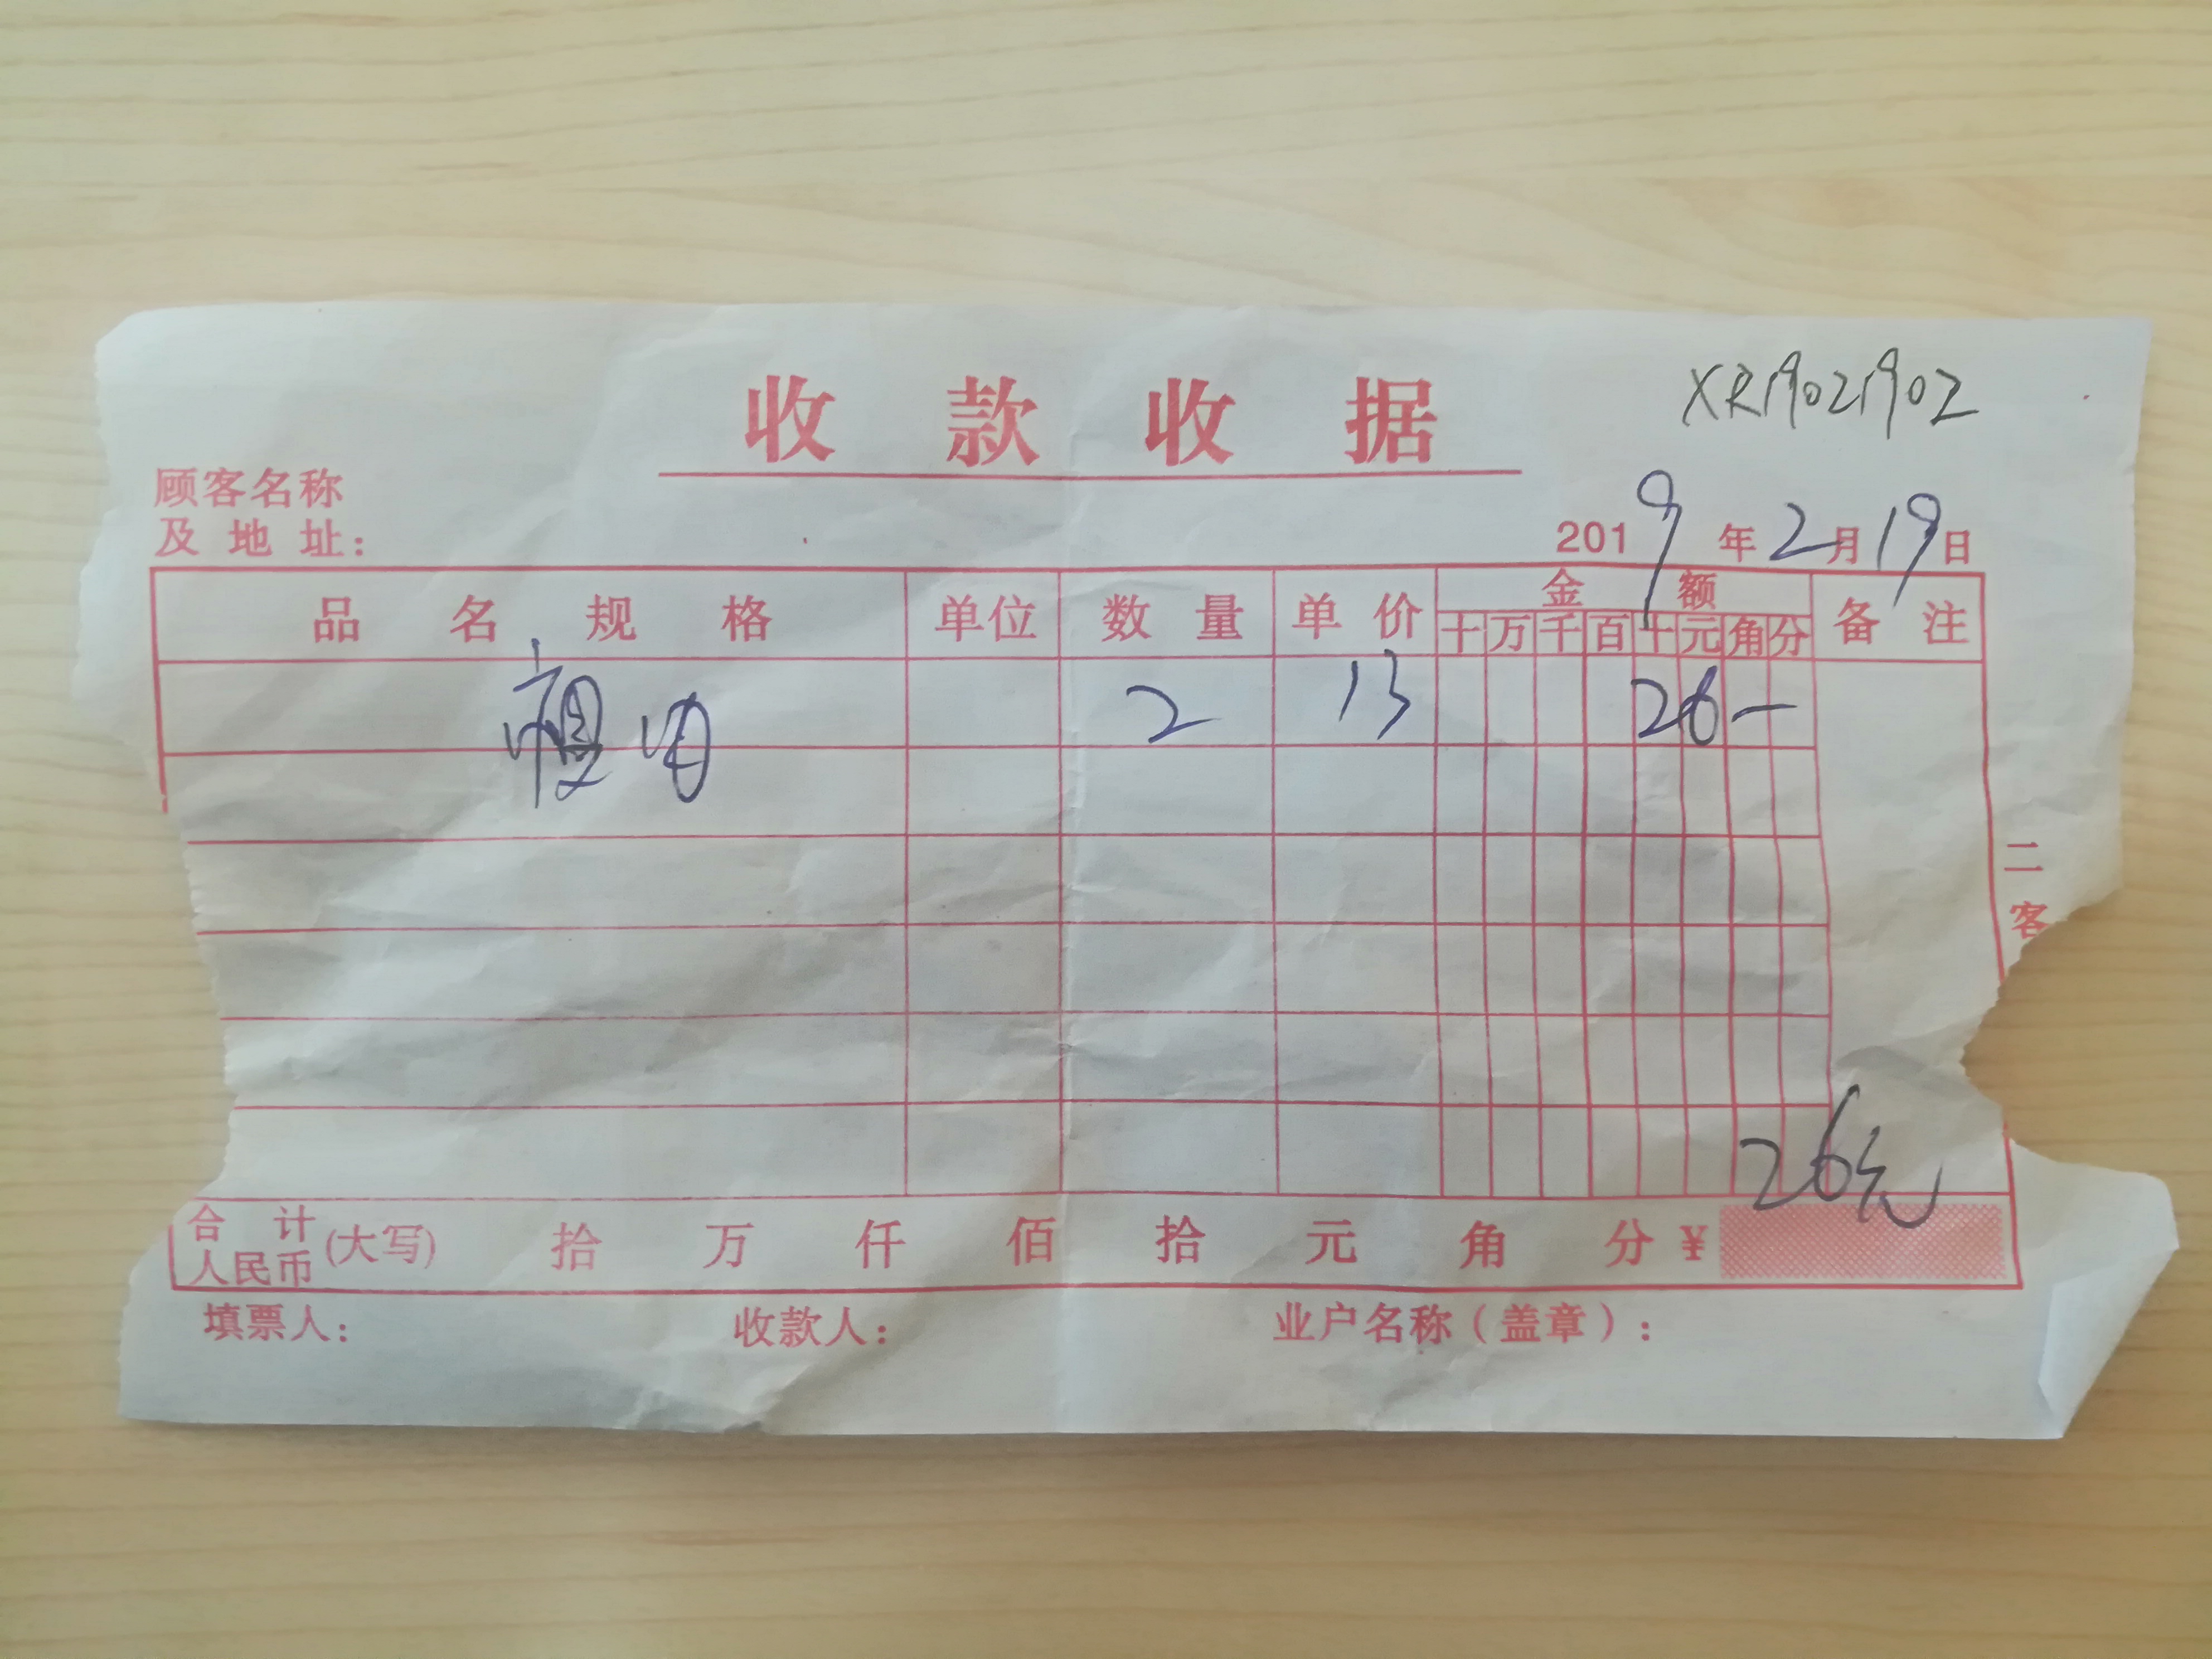 XR19021902
收款收据
顾客名称
及地址:
2019年2月19日
品名规格 单位 数量 单价 金额 备注
十万千百十元角分
2 13 26—
二客
26元
合计
人民币(大写) 拾 万 仟 佰 拾 元 角 分 ¥
填票人: 收款人: 业户名称(盖章):